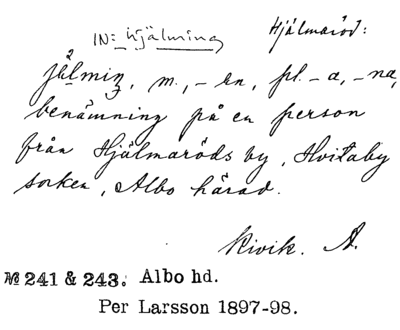 IN: Hjälming
Hjälmaröd:
jålming, m., -en, pl. -a, -na,
benämning på en person
från Hjälmaröds by, Hvitaby
socken, Albo härad.
Kivik. A.
№ 241 & 243. Albo hd.
Per Larsson 1897-98.